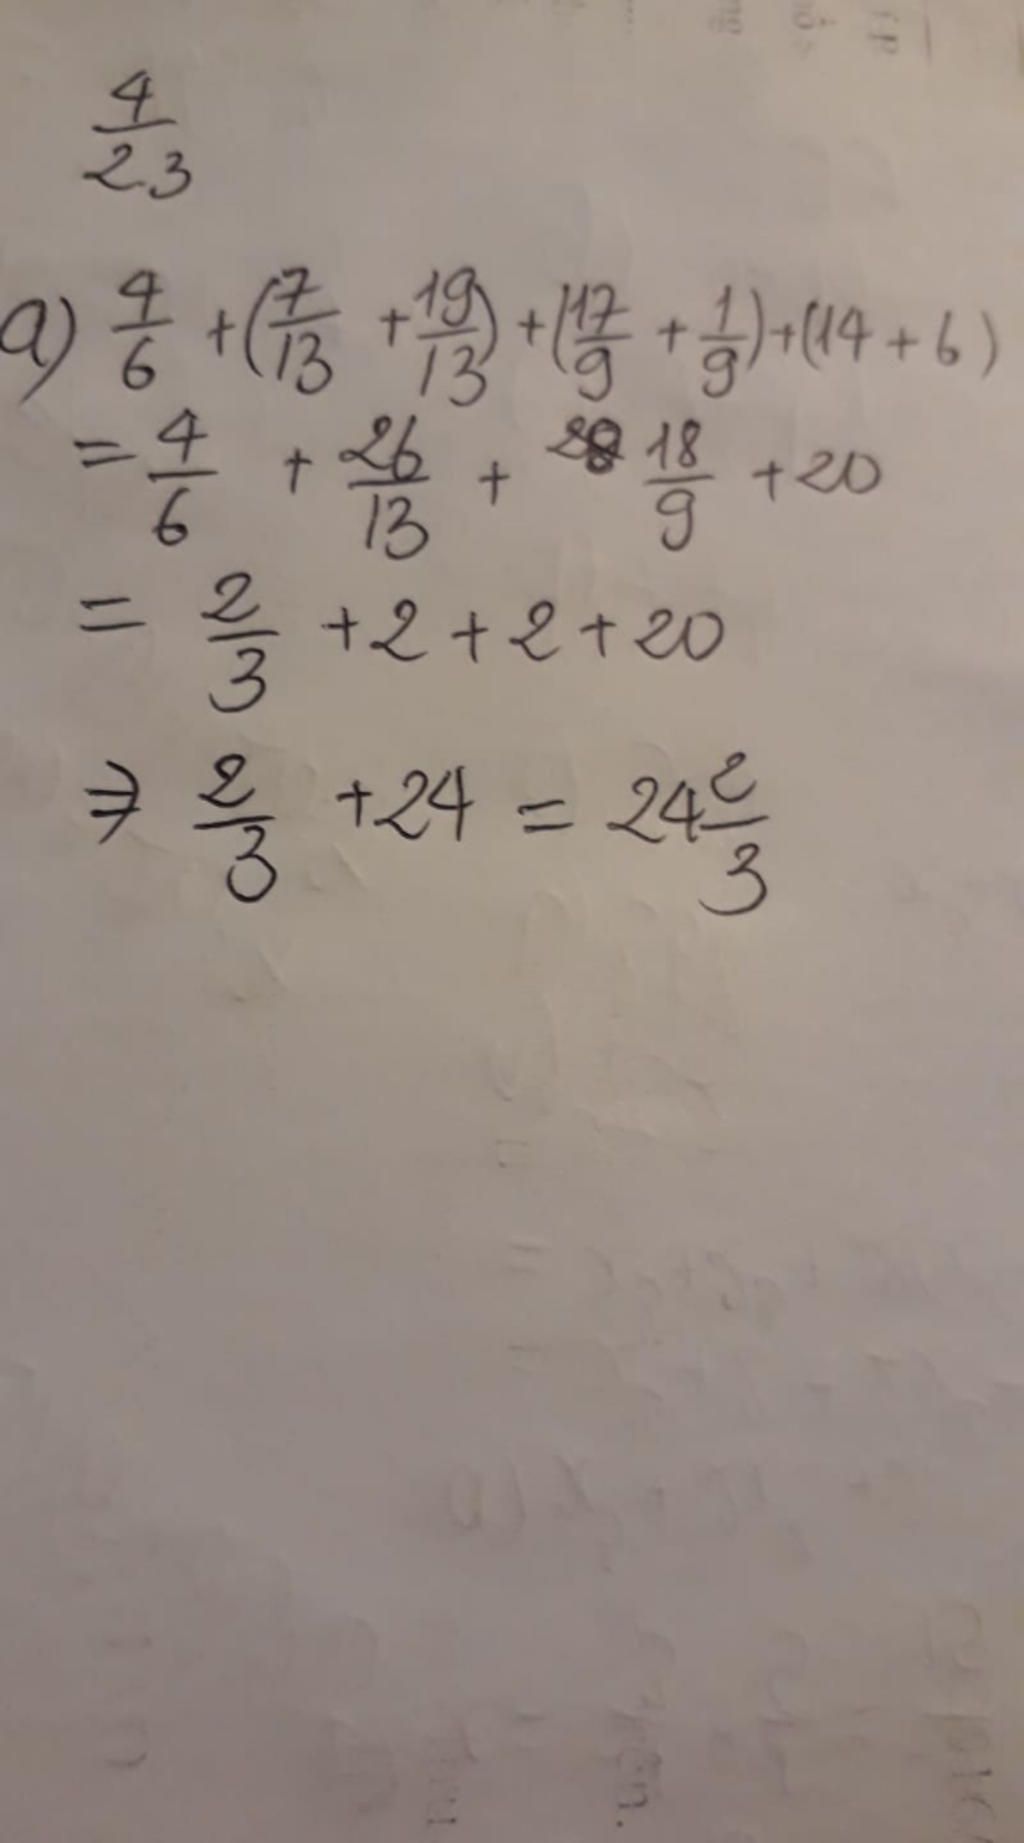 4/23
a) 4/6 + (7/13 + 19/13) + (17/9 + 1/9) + (14 + 6)
= 4/6 + 26/13 + 18/9 + 20
= 2/3 + 2 + 2 + 20
⇒ 2/3 + 24 = 24 2/3